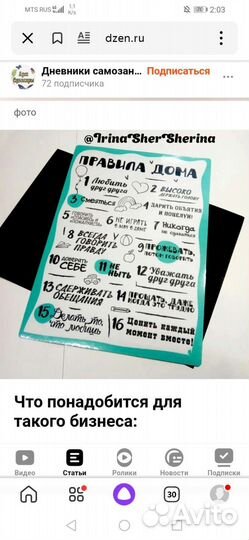 MTS RUS
2:03
dzen.ru
Дневники самозан... Подписаться
72 подписчика
фото
@IrinaSherSherina
ПРАВИЛА ДОМА
1 Любить друг друга
2 ВЫСОКО держать голову
3 Смеяться
4 ДАРИТЬ ОБЪЯТИЯ и поцелуи!
6 НЕ ИГРАТЬ
7 Никогда не сдаваться
8 ВСЕГДА ГОВОРИТЬ ПРАВДУ
9 ПРОЖЕВАТЬ, потом говорить
10 ДОВЕРЯТЬ СЕБЕ
11 НЕ НЫТЬ
12 Уважать друг друга
13 СДЕРЖИВАТЬ ОБЕЩАНИЯ
14 ПРОЩАТЬ, ДАЖЕ КОГДА ЭТО ТРУДНО
15 Делать то, что любишь
16 Ценить каждый момент вместе!
Что понадобится для
такого бизнеса:
Видео Статьи Ролики Новости Подписки
30
Avito